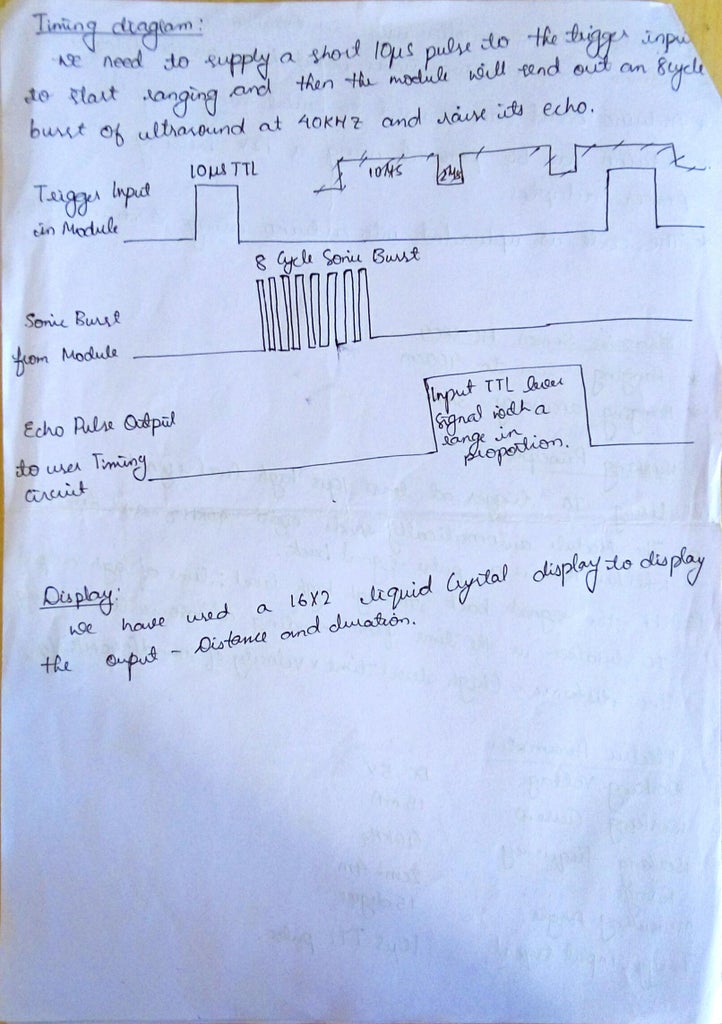 Timing diagram:
we need to supply a short 10μs pulse to the trigger input
to start ranging and then the module will send out an 8 cycle
burst of ultrasound at 40KHZ and raise its echo.
10μs TTL
10μs
2μs
Trigger Input
in Module
8 Cycle Sonic Burst
Sonic Burst
from Module
Input TTL lever
signal with a
range in
proportion.
Echo Pulse Output
to user Timing
Circuit
Display:
we have used a 16X2 liquid Crystal display to display
the ouput - Distance and duration.